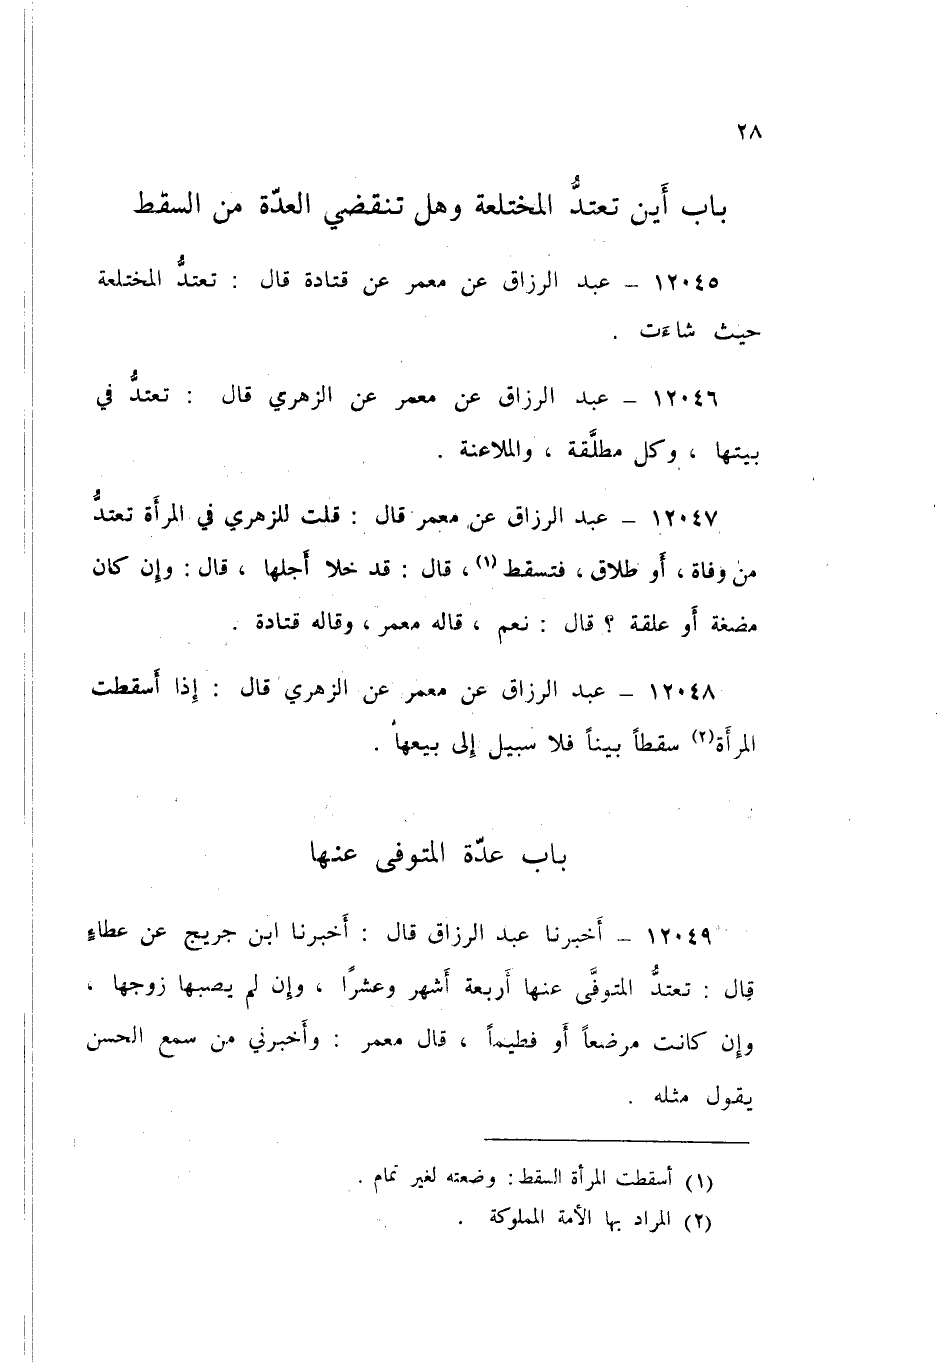 ٢٨
باب أَين تعتدُّ المختلعة وهل تنقضي العدّة من السقط
١٢٠٤٥ – عبد الرزاق عن معمر عن قتادة قال : تعتدُّ المختلعة
حيث شاءَت .
١٢٠٤٦ – عبد الرزاق عن معمر عن الزهري قال : تعتدُّ في
بيتها ، وكل مطلَّقة ، والملاعنة .
١٢٠٤٧ – عبد الرزاق عن معمر قال : قلت للزهري في المرأَة تعتدُّ
من وفاة ، أَو طلاق ، فتسقط (١) ، قال : قد خلا أَجلها ، قال : وإِن كان
مضغة أَو علقة ؟ قال : نعم ، قاله معمر ، وقاله قتادة .
١٢٠٤٨ – عبد الرزاق عن معمر عن الزهري قال : إِذا أَسقطت
المرأَة (٢) سقطاً بيناً فلا سبيل إِلى بيعها .
باب عدّة المتوفى عنها
١٢٠٤٩ – أَخبرنا عبد الرزاق قال : أَخبرنا ابن جريج عن عطاءٍ
قال : تعتدُّ المتوفَّى عنها أَربعة أَشهر وعشرًا ، وإِن لم يصبها زوجها ،
وإِن كانت مرضعاً أَو فطيماً ، قال معمر : وأَخبرني من سمع الحسن
يقول مثله .
(١) أسقطت المرأة السقط : وضعته لغير تمام .
(٢) المراد بها الأمة المملوكة .